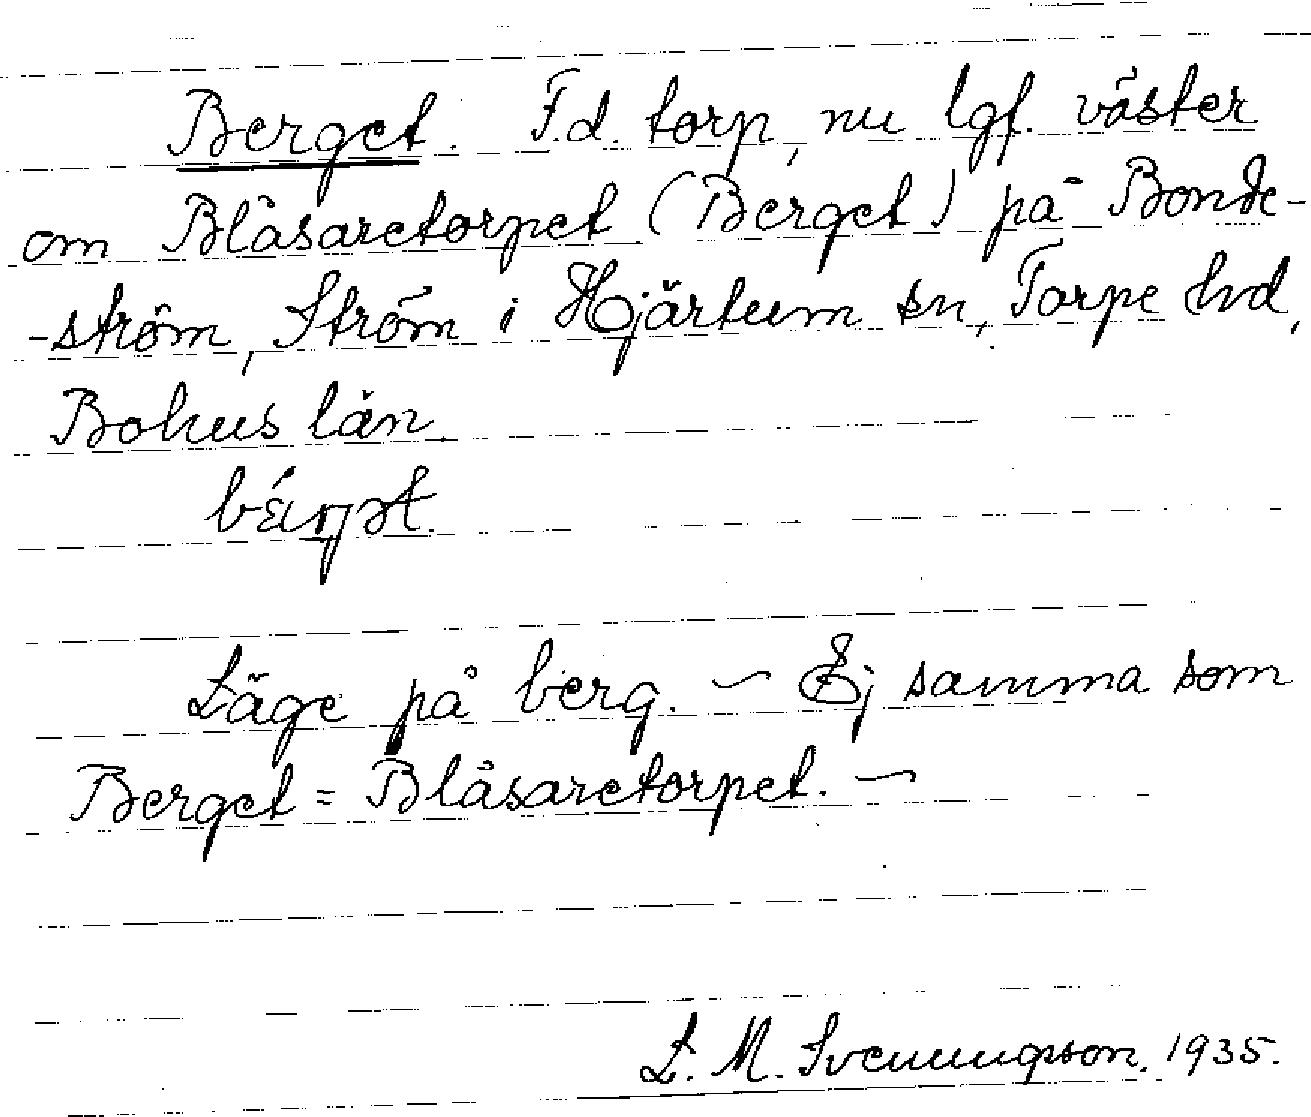 Berget. F.d. torp, nu lgf. väster
om Blåsaretorpet (Berget) på Bonde-
-ström, Ström i Hjärtum sn, Torpe hd,
Bohus län.
Läge på berg. — Ej samma som
Berget = Blåsaretorpet. —
L. M. Svenungsson. 1935.